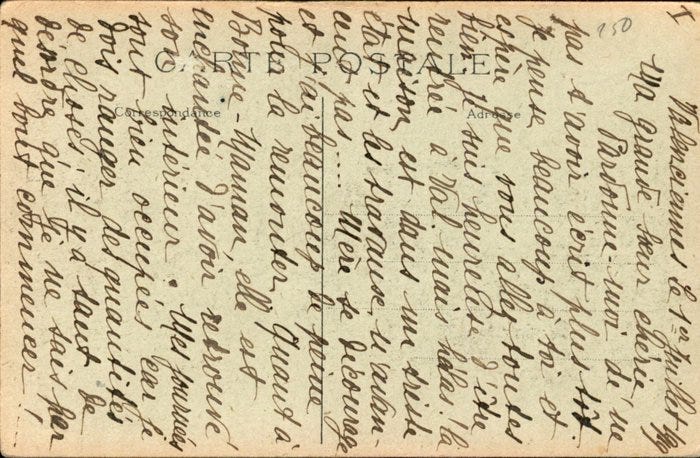 I
250
CARTE POSTALE
Correspondance
Adresse
Valenciennes le 1er Juillet
Ma grande sœur chérie
Pardonne-moi de ne
pas t'avoir écrit plus tôt
Je pense beaucoup à toi et
espère que vous allez toutes
bien. Je suis heureuse d'être
rentrée à Val. mais hélas ! la
maison est dans un triste
état et les travaux n'avan-
cent pas .... Mère se décourage
et j'ai beaucoup de peine
pour la remonter. Quant à
Bonne-Maman elle est
enchantée d'avoir retrouvé
son intérieur. Mes journées
sont bien occupées car je
dois ranger des quantités
de choses, il y a tant de
désordre que je ne sais par
quel bout commencer !